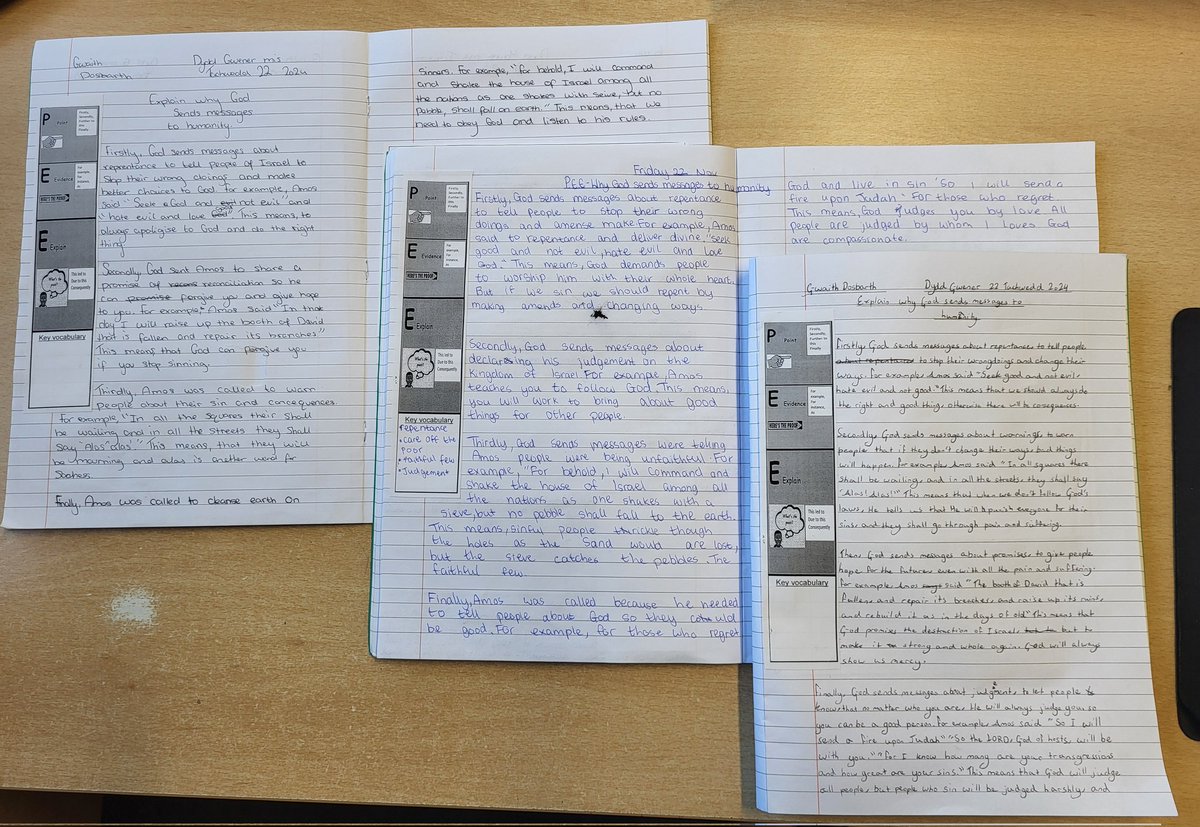 Gwaith
Dosbarth
Dydd Gwener mis
Tachwedd 22 2024
Explain why God
Sends messages
to humanity.
P Point
Firstly,
Secondly,
Further to
this
Finally
E Evidence
For
example,
For
instance,
As
HERE'S THE PROOF
E Explain
What's the
point?
This led to
Due to this
Consequently
Key vocabulary
Firstly, God sends messages about
reprentance to tell people of Israel to
Stop their wrong doings and make
better choices to God for example, Amos
Said "Seek God and not evil" and
"hate evil and love God" This means, to
always apologise to God and do the right
thing
Secondly, God sent Amos to share a
promise of reconciliation so he
can pergive you and give hope
to you. for example, Amos said "In the
day I will raise up the booth of David
that is fallen and repair its branches"
This means that God can pergive you
if you stop sinning.
Thirdly, Amos was called to warn
people about their sin and concequences.
For example, "In all the squares their shall
be wailing and in all the streets they shall
Say 'Alas alas'" This means, that they will
be mourning and alas is another word for
Finally, Amos was called to cleanse earth on
Sinners. For example, "for behold, I will command
and shake the house of Israel among all
the nations as one shakes with seive, but no
Pebble, shall fall on earth." This means, that we
need to obey God and listen to his rules.
Friday 22 Nov
PEE-Why God sends messages to humanity
P Point
Firstly,
Secondly,
Further to
this
Finally
E Evidence
For
example,
For
instance,
As
HERE'S THE PROOF
E Explain
What's the
point?
This led to
Due to this
Consequently
Key vocabulary
repentance
• care off the
poor
• faithful few
• Judgement
Firstly, God sends messages about repentance
to tell people to stop their wrong
doings and amense make. For example, Amos
said to repentance and deliver divine, "seek
good and not evil, hate evil and love
God." This means, God demands people
to worship him with their whole heart.
But if we sin we should repent by
making amends and changing ways.
Secondly, God sends messages about
declaring his judgement on the
Kingdom of Israel. For example, Amos
teaches you to follow God. This means,
you will work to bring about good
things for other people.
Thirdly, God sends messages were telling
Amos people were being unfaithful. For
example, "For behold, I will command and
shake the house of Israel among all
the nations as one shakes with a
sieve, but no pebble shall fall to the earth.
This means, sinful people thrickle though
the holes as the Sand would are lost,
but the sieve catches the pebbles. The
faithful few.
Finally, Amos was called because he needed
to tell people about God so they could
be good. For example, for those who regret
God and live in sin 'So I will send a
fire upon Judah' For those who regret.
This means, God judges you by love All
people are judged by whom I loves God
are compassionate.
Gwaith Dosbarth
Dydd Gwener 22 Tachwedd 2024
Explain why God sends messages to
humanity.
P Point
Firstly,
Secondly,
Further to
this
Finally
E Evidence
For
example,
For
instance,
As
HERE'S THE PROOF
E Explain
What's the
point?
This led to
Due to this
Consequently
Key vocabulary
Firstly God sends messages about repentance to tell people
about repentance to stop their wrongdoings and change their
ways. For example Amos said "Seek good and not evil,
hate evil and not good." This means that we should always do
the right and good thing, otherwise there will be coseguences.
Secondly God sends messages about warnings to warn
people that if they don't change their ways bad things
will happen. for example Amos said "In all squares there
shall be wailing, and in all the streets they shall say
"Alas! Alas!"" This means that when we don't follow God's
laws, He tells us that He will punish everyone for their
sins and they shall go through pain and suffering.
Then, God sends messages about promises to give people
hope for the future, even with all the pain and suffering.
for example Amos said "The booth of David that is
fallen and repair its breaches, and raise up its ruins,
and rebuild it as in the days of old" This means that
God promises the destruction of Israel, but to
make it strong and whole again. God will always
show us mercy.
Finally, God sends messages about judgments, to let people
know that no matter who you are, He will always judge you, so
you can be a good person. For example, Amos said "So I will
send a fire upon Judah" "So the LORD, God of hosts, will be
with you." "For I know how many are your transgressions
and how great are your sins." This means that God will judge
all people, but people who sin will be judged harshly, and